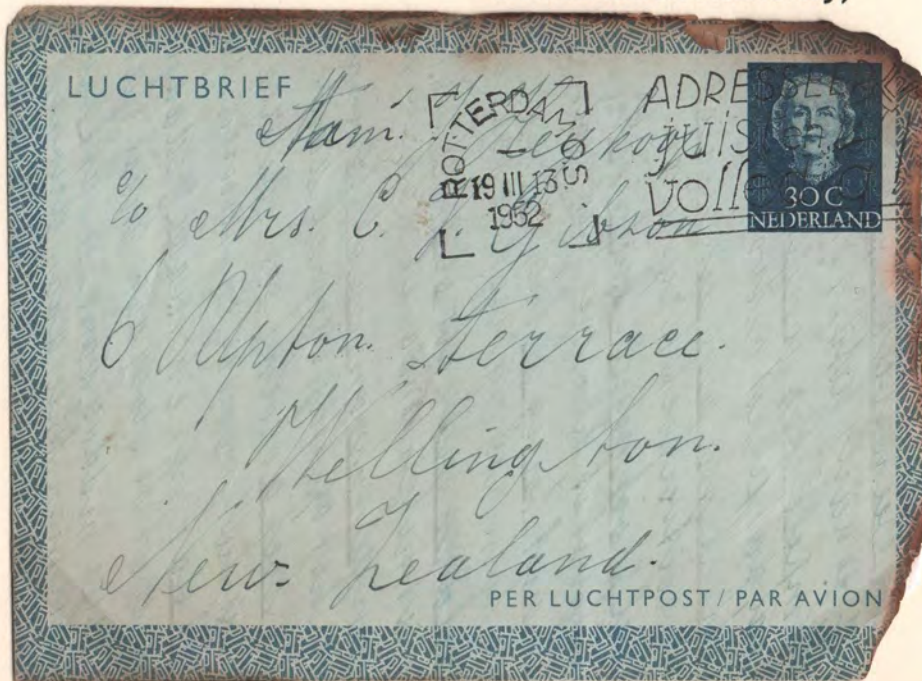 LUCHTBRIEF
Fam.
ROTTERDAM
19 III 13
1952
ADRESSEER
juist en
volledig!
30 C
NEDERLAND
c/o Mrs. C. L. Gibson
6 Upton. Terrace.
Wellington.
New. Zealand.
PER LUCHTPOST / PAR AVION